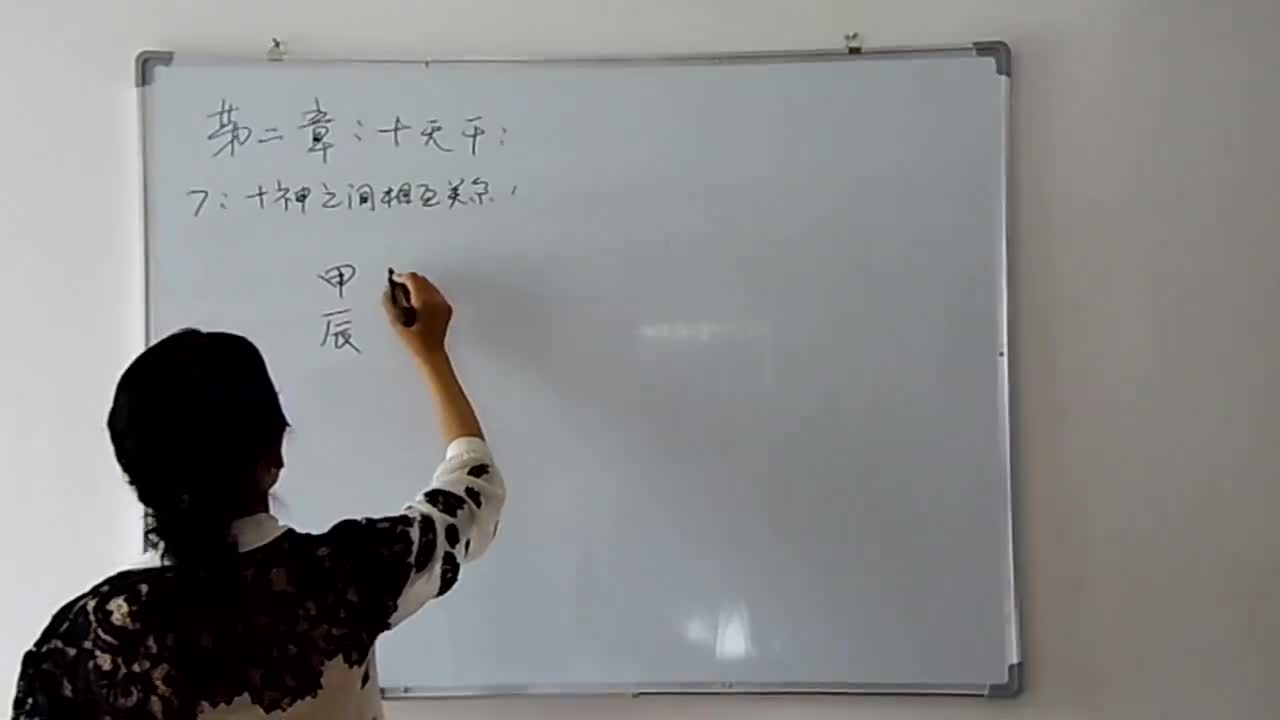 第二章:十天干:
7:十神之间相互关系
甲
辰